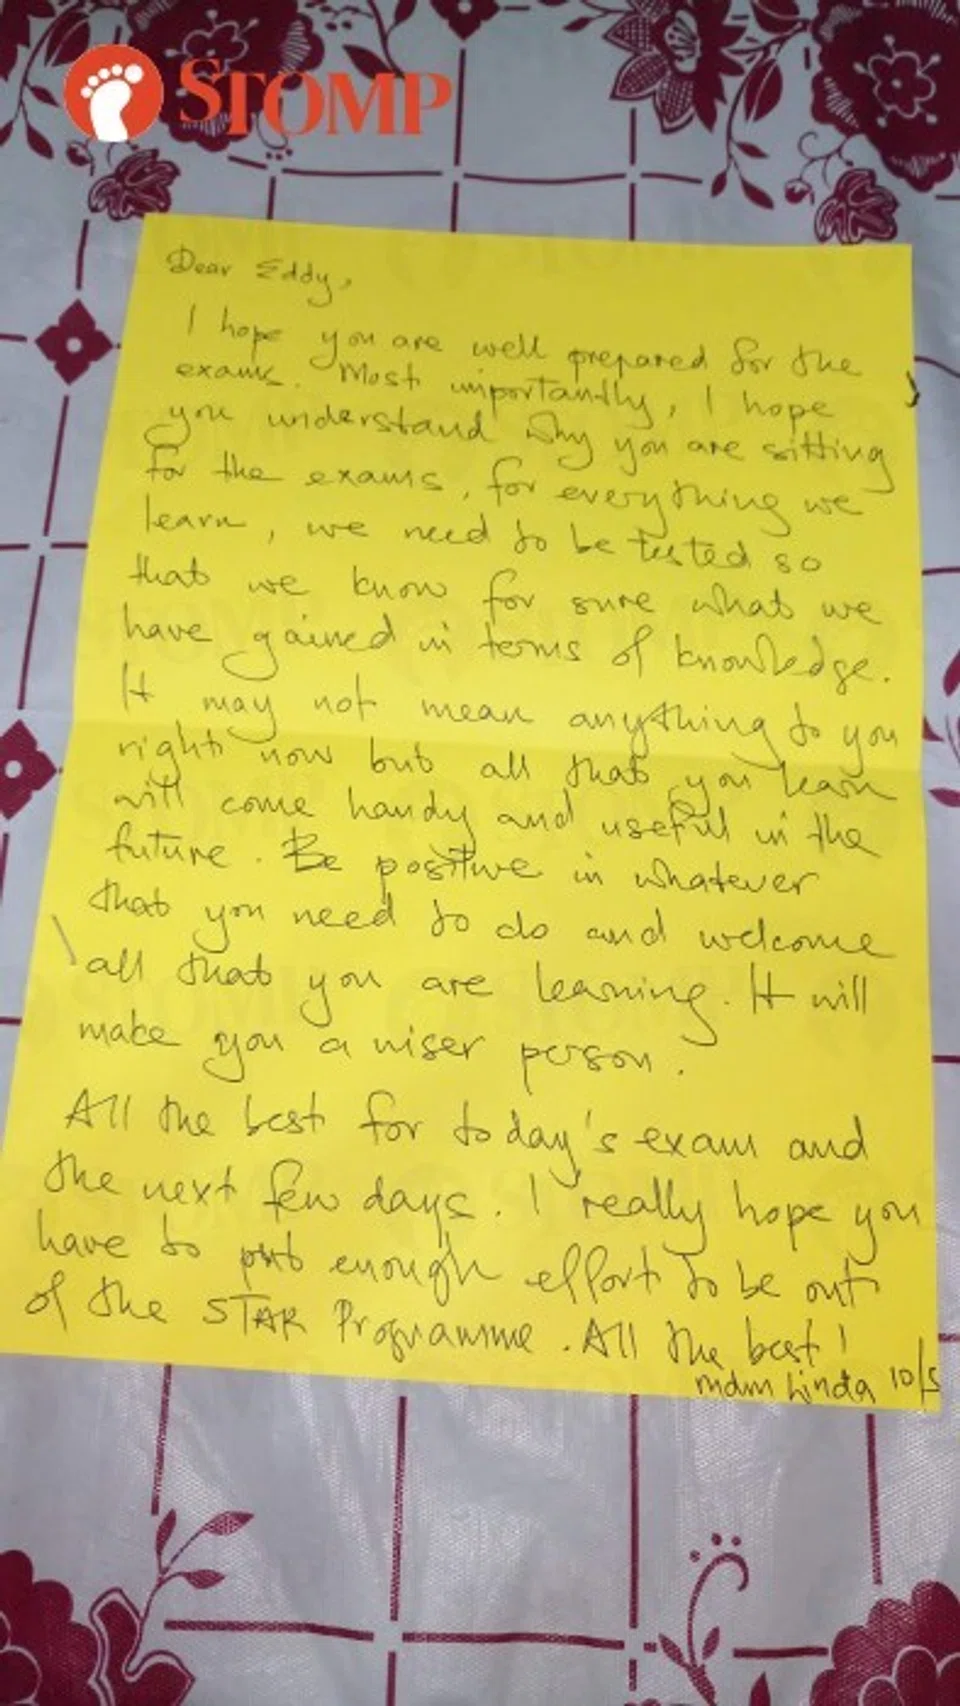 STOMP
Dear Eddy,
I hope you are well prepared for the
exams. Most importantly, I hope
you understand why you are sitting
for the exams, for everything we
learn, we need to be tested so
that we know for sure what we
have gained in terms of knowledge.
It may not mean anything to you
right now but all that you learn
will come handy and useful in the
future. Be positive in whatever
that you need to do and welcome
all that you are learning. It will
make you a wiser person.
All the best for today's exam and
the next few days. I really hope you
have to put enough effort to be out
of the STAR Programme. All the best!
mdm Linda 10/5